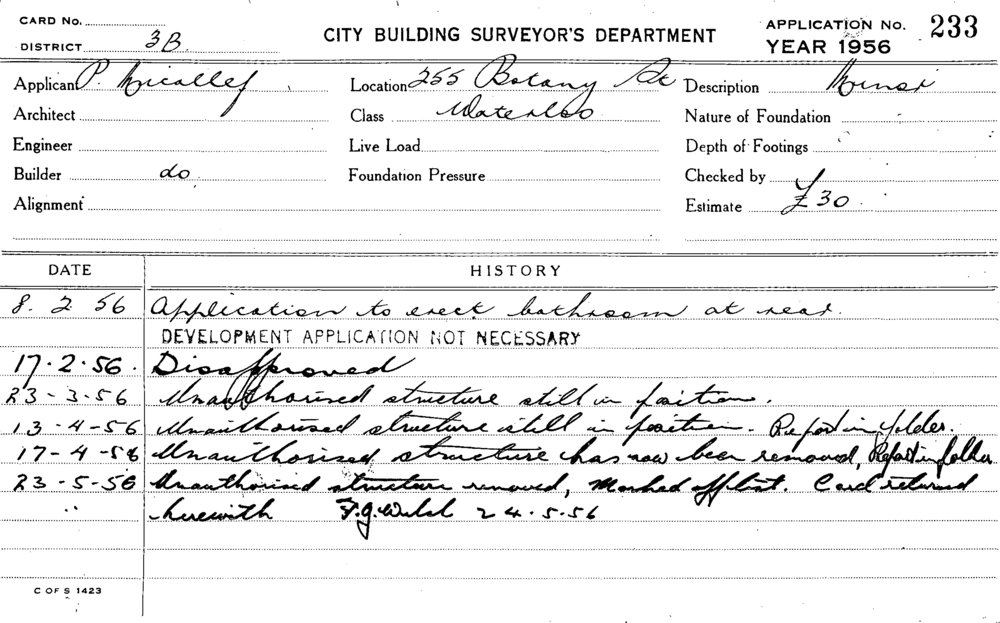 CARD No.
DISTRICT 3B
CITY BUILDING SURVEYOR'S DEPARTMENT
APPLICATION No. 233
YEAR 1956
Applicant P. Micallef
Location 255 Botany St
Description Minor
Architect
Class Waterloo
Nature of Foundation
Engineer
Live Load
Depth of Footings
Builder do
Foundation Pressure
Checked by
Alignment
Estimate £30
DATE HISTORY
8. 2 56 Application to erect bathroom at rear.
DEVELOPMENT APPLICATION NOT NECESSARY
17·2·56. Disapproved
23-3-56 Unauthorised structure still in position.
13-4-56 Unauthorised structure still in position. Report in folder.
17-4-56 Unauthorised structure has now been removed, Report in folder
23-5-56 Unauthorised structure removed, Marked off list. Card returned
herewith F.J. Welsh 24·5·56
C OF S 1423